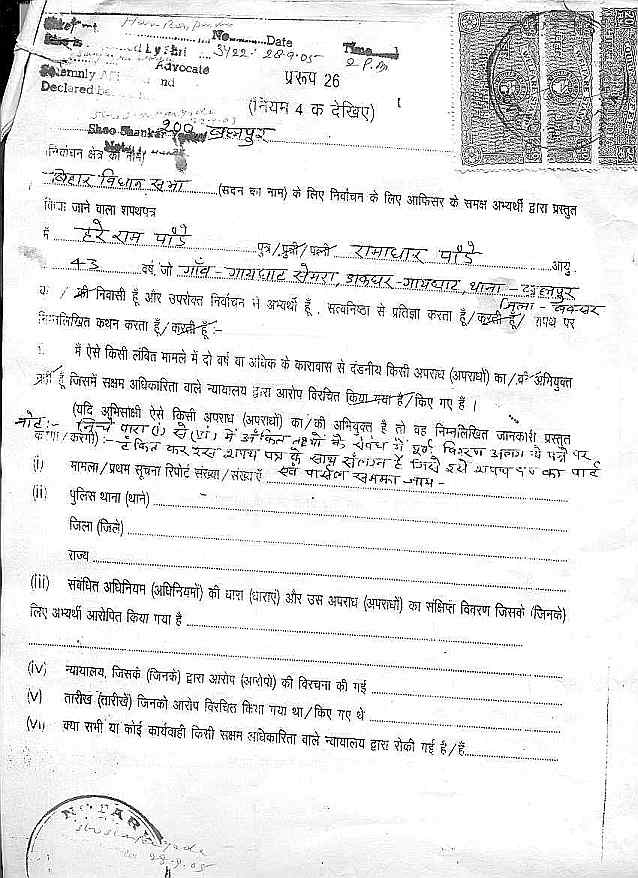 No. Date Time
3422 28.9.05 2 P.M.
Advocate
Solemnly nd
Declared Be
प्ररूप 26
(नियम 4 क देखिए)
Sheo Shankar
200 ब्रह्मपुर
निर्वाचन क्षेत्र का नाम)
बिहार विधान सभा (सदन का नाम) के लिए निर्वाचन के लिए आफिसर के समक्ष अभ्यर्थी द्वारा प्रस्तुत
किया जाने वाला शपथपत्र
मैं हरे राम पाँडे पुत्र/पुत्री/पत्नी रामाधार पाँडे आयु
43 वर्ष, जो गाँव - गायघाट डाकघर - गायघाट, थाना - ब्रह्मपुर
जिला - बक्सर
का / की निवासी हूँ और उपरोक्त निर्वाचन में अभ्यर्थी हूँ, सत्यनिष्ठा से प्रतिज्ञा करता हूँ/करती हूँ/ शपथ पर
निम्नलिखित कथन करता हूँ/करती हूँ :-
मैं ऐसे किसी लंबित मामले में दो वर्ष या अधिक के कारावास से दंडनीय किसी अपराध (अपराधों) का/की अभियुक्त
नहीं हूँ जिसमें सक्षम अधिकारिता वाले न्यायालय द्वारा आरोप विरचित किया गया है/किए गए हैं ।
(यदि अभिसाक्षी ऐसे किसी अपराध (अपराधों) का/की अभियुक्त है तो वह निम्नलिखित जानकारी प्रस्तुत
नोट:- निम्न पारा (i) से (vi) में अंकित तथ्यों के संबंध में पूर्ण विवरण अलग से पन्ने पर
करेगा/करेगी) :- टंकित कर इस शपथ पत्र के साथ संलग्न है जिसे इसी शपथ पत्र का पार्ट
(i) मामला/प्रथम सूचना रिपोर्ट संख्या/संख्याएं एवं पार्सल समझा जाय -
(ii) पुलिस थाना (थाने)
जिला (जिले)
राज्य
(iii) संबंधित अधिनियम (अधिनियमों) की धारा (धाराएं) और उस अपराध (अपराधों) का संक्षिप्त विवरण जिसके (जिनके)
लिए अभ्यर्थी आरोपित किया गया है
(iv) न्यायालय, जिसके (जिनके) द्वारा आरोप (आरोपों) की विरचना की गई
(v) तारीख (तारीखें) जिनको आरोप विरचित किया गया था/किए गए थे
(vi) क्या सभी या कोई कार्यवाही किसी सक्षम अधिकारिता वाले न्यायालय द्वारा रोकी गई है/हैं
NOTARY
28.9.05